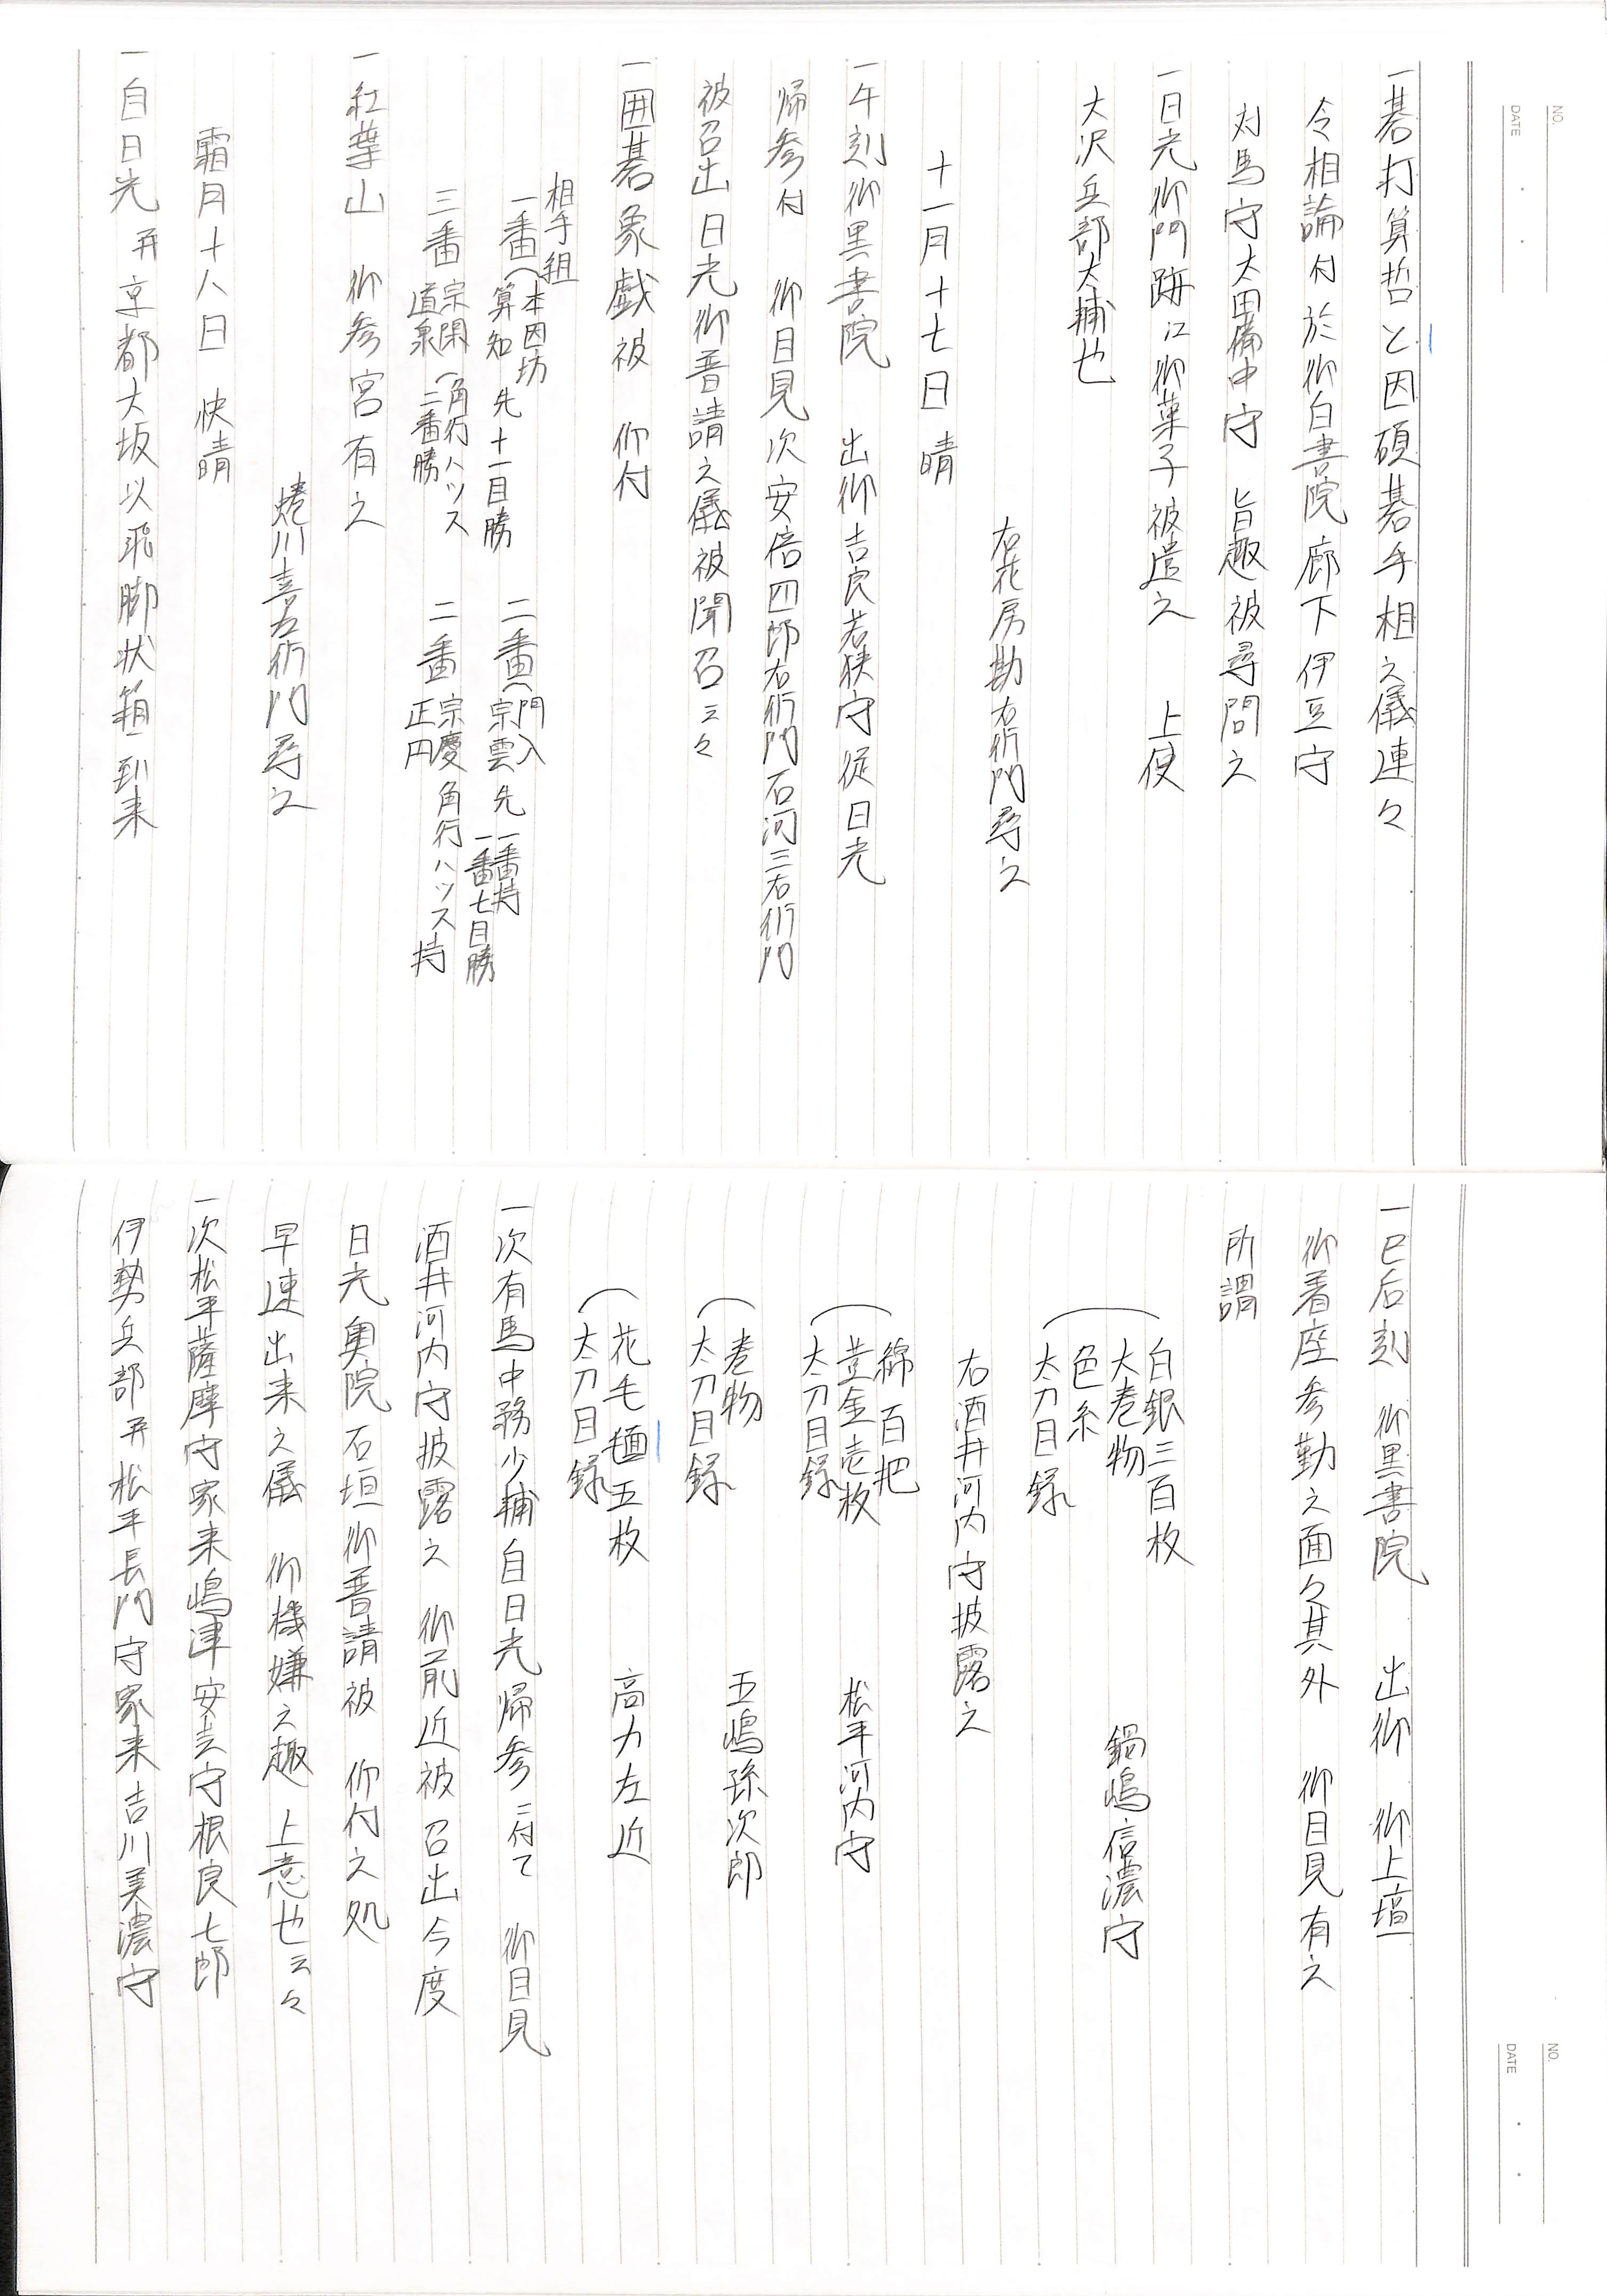 NO.
DATE
一碁打算哲と因碩碁手相之儀連々
令相論付於御白書院廊下伊豆守
対馬守太田備中守 旨趣被尋問之
一日光御門跡江御菓子被遣之 上使
大沢兵部大輔也
右花房勘右衛門尋之
十一月十七日 晴
一午刻御黒書院 出御吉良若狭守従日光
帰参付 御目見次安倍四郎右衛門石河三右衛門
被召出日光御普請之儀被聞召云々
一囲碁象戯被 仰付
相手組
一番(本因坊 算知 先十一目勝 二番(門入 宗雲 先 一番持 一番七目勝
三番 宗閑 道泉 (角行ハツス 二番勝 二番 宗慶 正円 角行ハツス 持
一紅葉山 御参宮有之
蜷川喜左衛門尋之
霜月十八日 快晴
一自日光并京都大坂以飛脚状箱到来
NO.
DATE
一巳后刻 御黒書院 出御 御上壇
御着座参勤之面々其外 御目見有之
所謂
白銀三百枚
大巻物
色糸
太刀目録
鍋嶋信濃守
右酒井河内守披露之
綿百把
黄金壱枚
太刀目録
松平河内守
巻物
太刀目録
五嶋孫次郎
花毛氈五枚
太刀目録
高力左近
一次有馬中務少輔自日光帰参ニ付て 御目見
酒井河内守披露之 御前近被召出今度
日光奥院石垣御普請被 仰付之処
早速出来之儀 御機嫌之趣 上意也云々
一次松平薩摩守家来嶋津安芸守根良七郎
伊勢兵部并松平長門守家来吉川美濃守